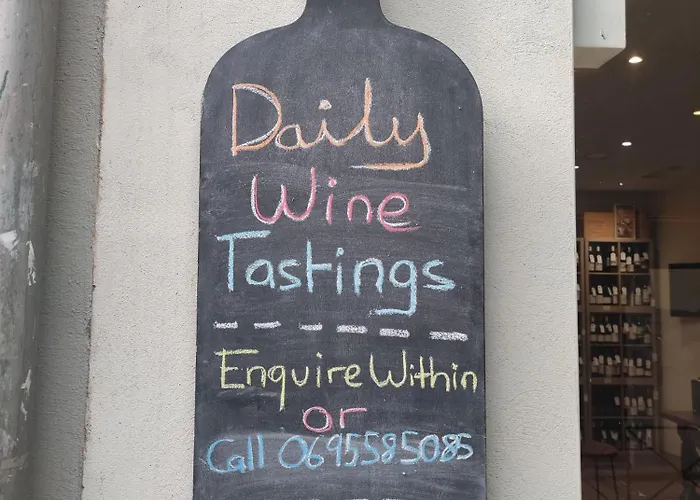 Daily
Wine
Tastings
Enquire Within
or
Call 0695585085